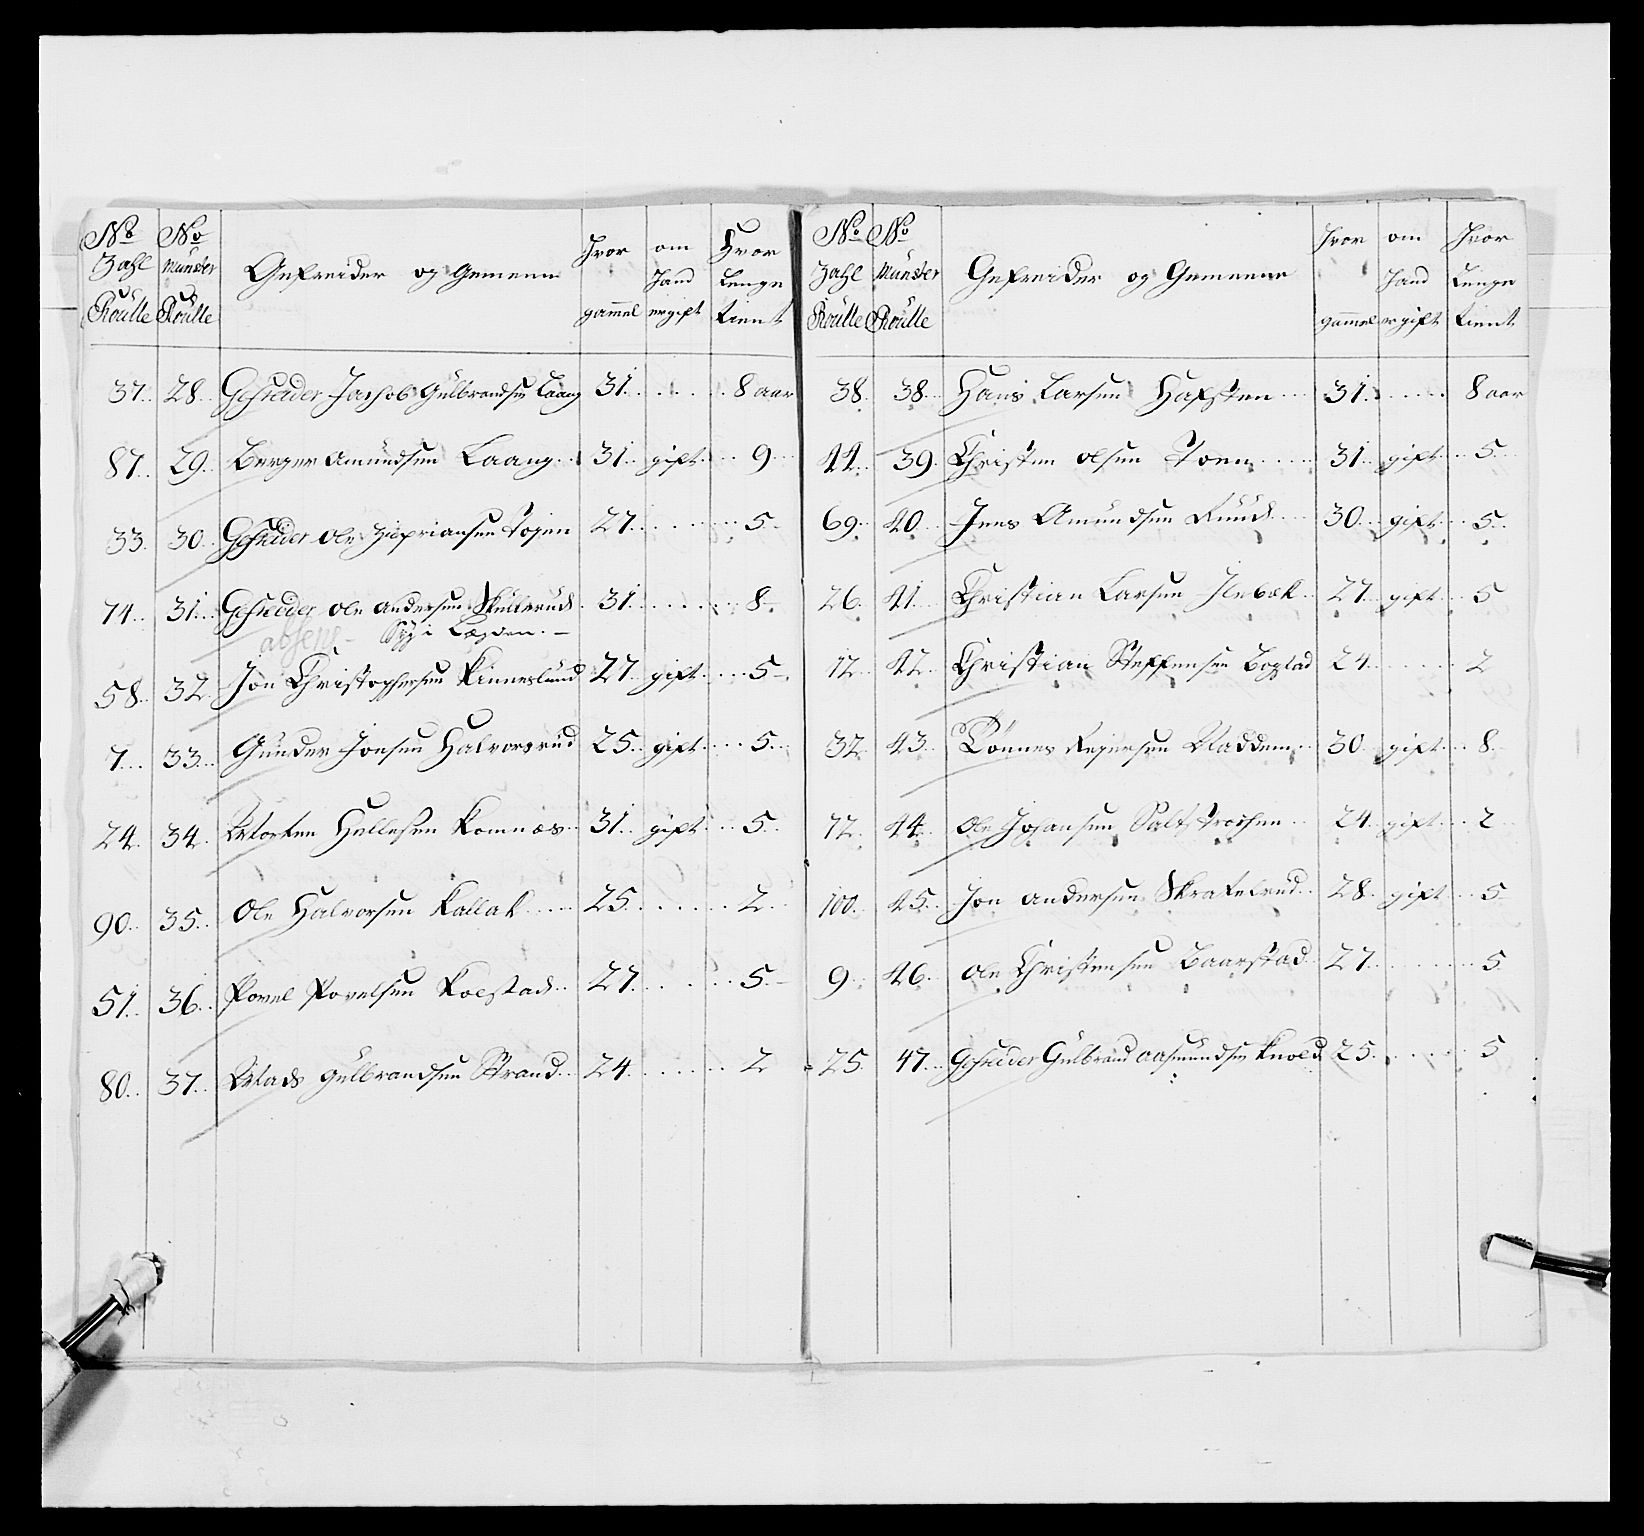 No Zahl Roulle | No Munster Roulle | Gefreider og Gemeene | Hvor gammel | om Hand er gift | Hvor Lenge tient
37 28 Gefreider Jachob Gulbrandsen Laang 31 8 aar
87 29 Berger Amundsen Laang 31 gift 9
33 30 Gefreider Ole Zipriansen Tojen 27 5
74 31 Gefreider Ole Andersen Skullerud 31 8
absent Syg i
58 32 Jon Christophersen Kinneslund 27 gift 5
7 33 Gunder Jonsen Halvorsrud 25 gift 5
24 34 Morten Hellesen Komnæs 31 gift 5
90 35 Ole Halvorsen Kallak 25 2
51 36 Povel Povelsen Kolstad 27 5
80 37 Mads Gulbrandsen Strand 24 2
No Zahl Roulle | No Munster Roulle | Gefreider og Gemeene | Hvor gammel | om Hand er gift | Hvor Lenge tient
38 38 Hans Larsen Hafsten 31 8 aar
44 39 Christen Olsen Toen 31 gift 5
69 40 Jens Amundsen Ruud 30 gift 5
26 41 Christian Larsen Ilebæk 27 gift 5
12 42 Christian Steffensen Bogstad 24 2
32 43 Tønnes Rejersen Naddem 30 gift 8
72 44 Ole Johansen Saltstrochen 24 gift 2
100 45 Jon Andersen Skratelrud 28 gift 5
9 46 Ole Christensen Baarstad 27 5
25 47 Gefreider Gulbrand Aasmundsen Knold 25 5